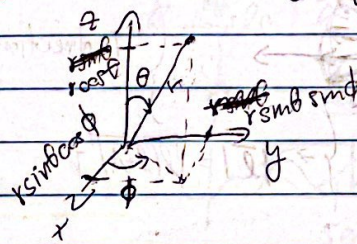 z
r cosθ
θ
r
r sinθ sinφ
r sinθ cosφ
φ
y
x